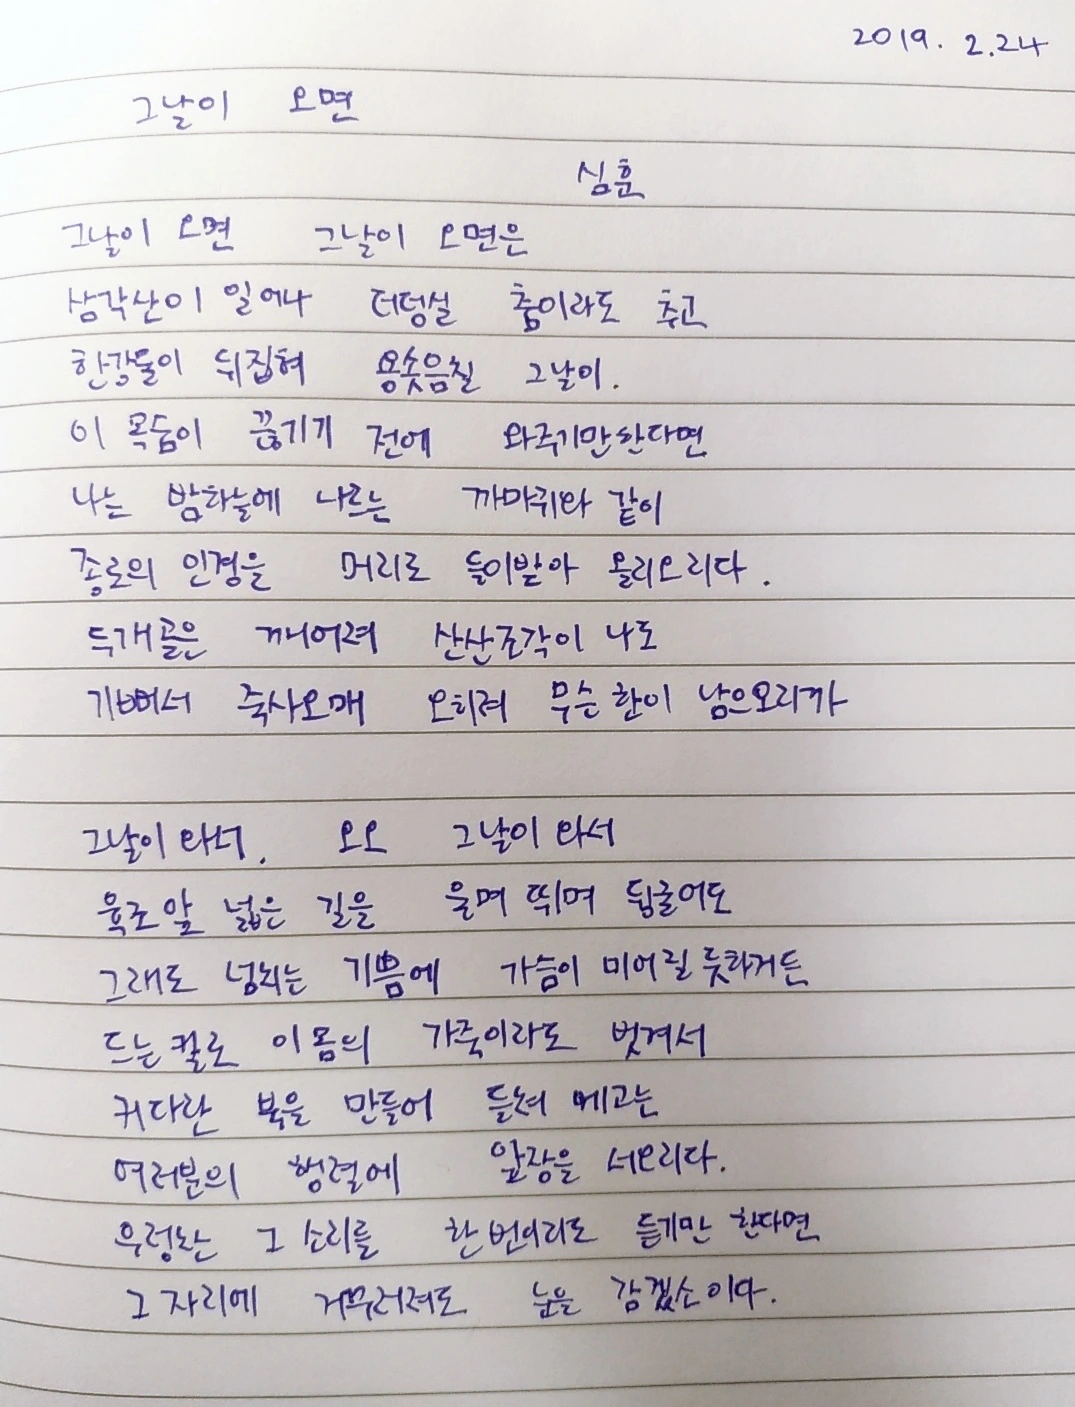 2019. 2.24
그날이 오면
심훈
그날이 오면 그날이 오면은
삼각산이 일어나 더덩실 춤이라도 추고
한강물이 뒤집혀 용솟음칠 그날이.
이 목숨이 끊기기 전에 와주기만한다면
나는 밤하늘에 나르는 까마귀와 같이
종로의 인경을 머리로 들이받아 올리오리다.
두개골은 깨어져 산산조각이 나도
기뻐서 죽사오매 오히려 무슨 한이 남으오리까
그날이 와서. 오오 그날이 와서
육조앞 넓은 길을 울며 뛰며 뒹굴어도
그래도 넘치는 기쁨에 가슴이 미어질 듯하거든
드는 칼로 이 몸의 가죽이라도 벗겨서
커다란 북을 만들어 들쳐 메고는
여러분의 행렬에 앞장을 서오리다.
우렁찬 그 소리를 한 번이라도 듣기만 한다면
그 자리에 거꾸러져도 눈을 감겠소이다.